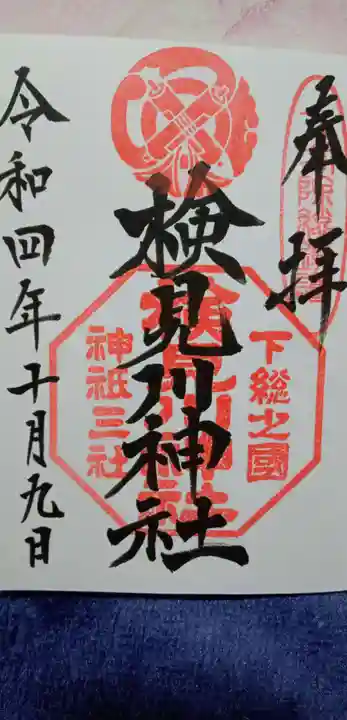 奉拝
下総之國
検見川神社
神祇三社
令和四年十月九日